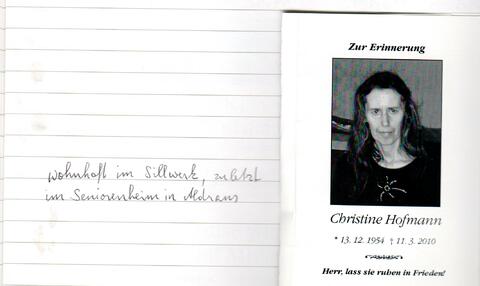 wohnhaft im Sillwerk, zuletzt
im Seniorenheim in Aldrans
Zur Erinnerung
Christine Hofmann
* 13. 12. 1954 † 11. 3. 2010
Herr, lass sie ruhen in Frieden!